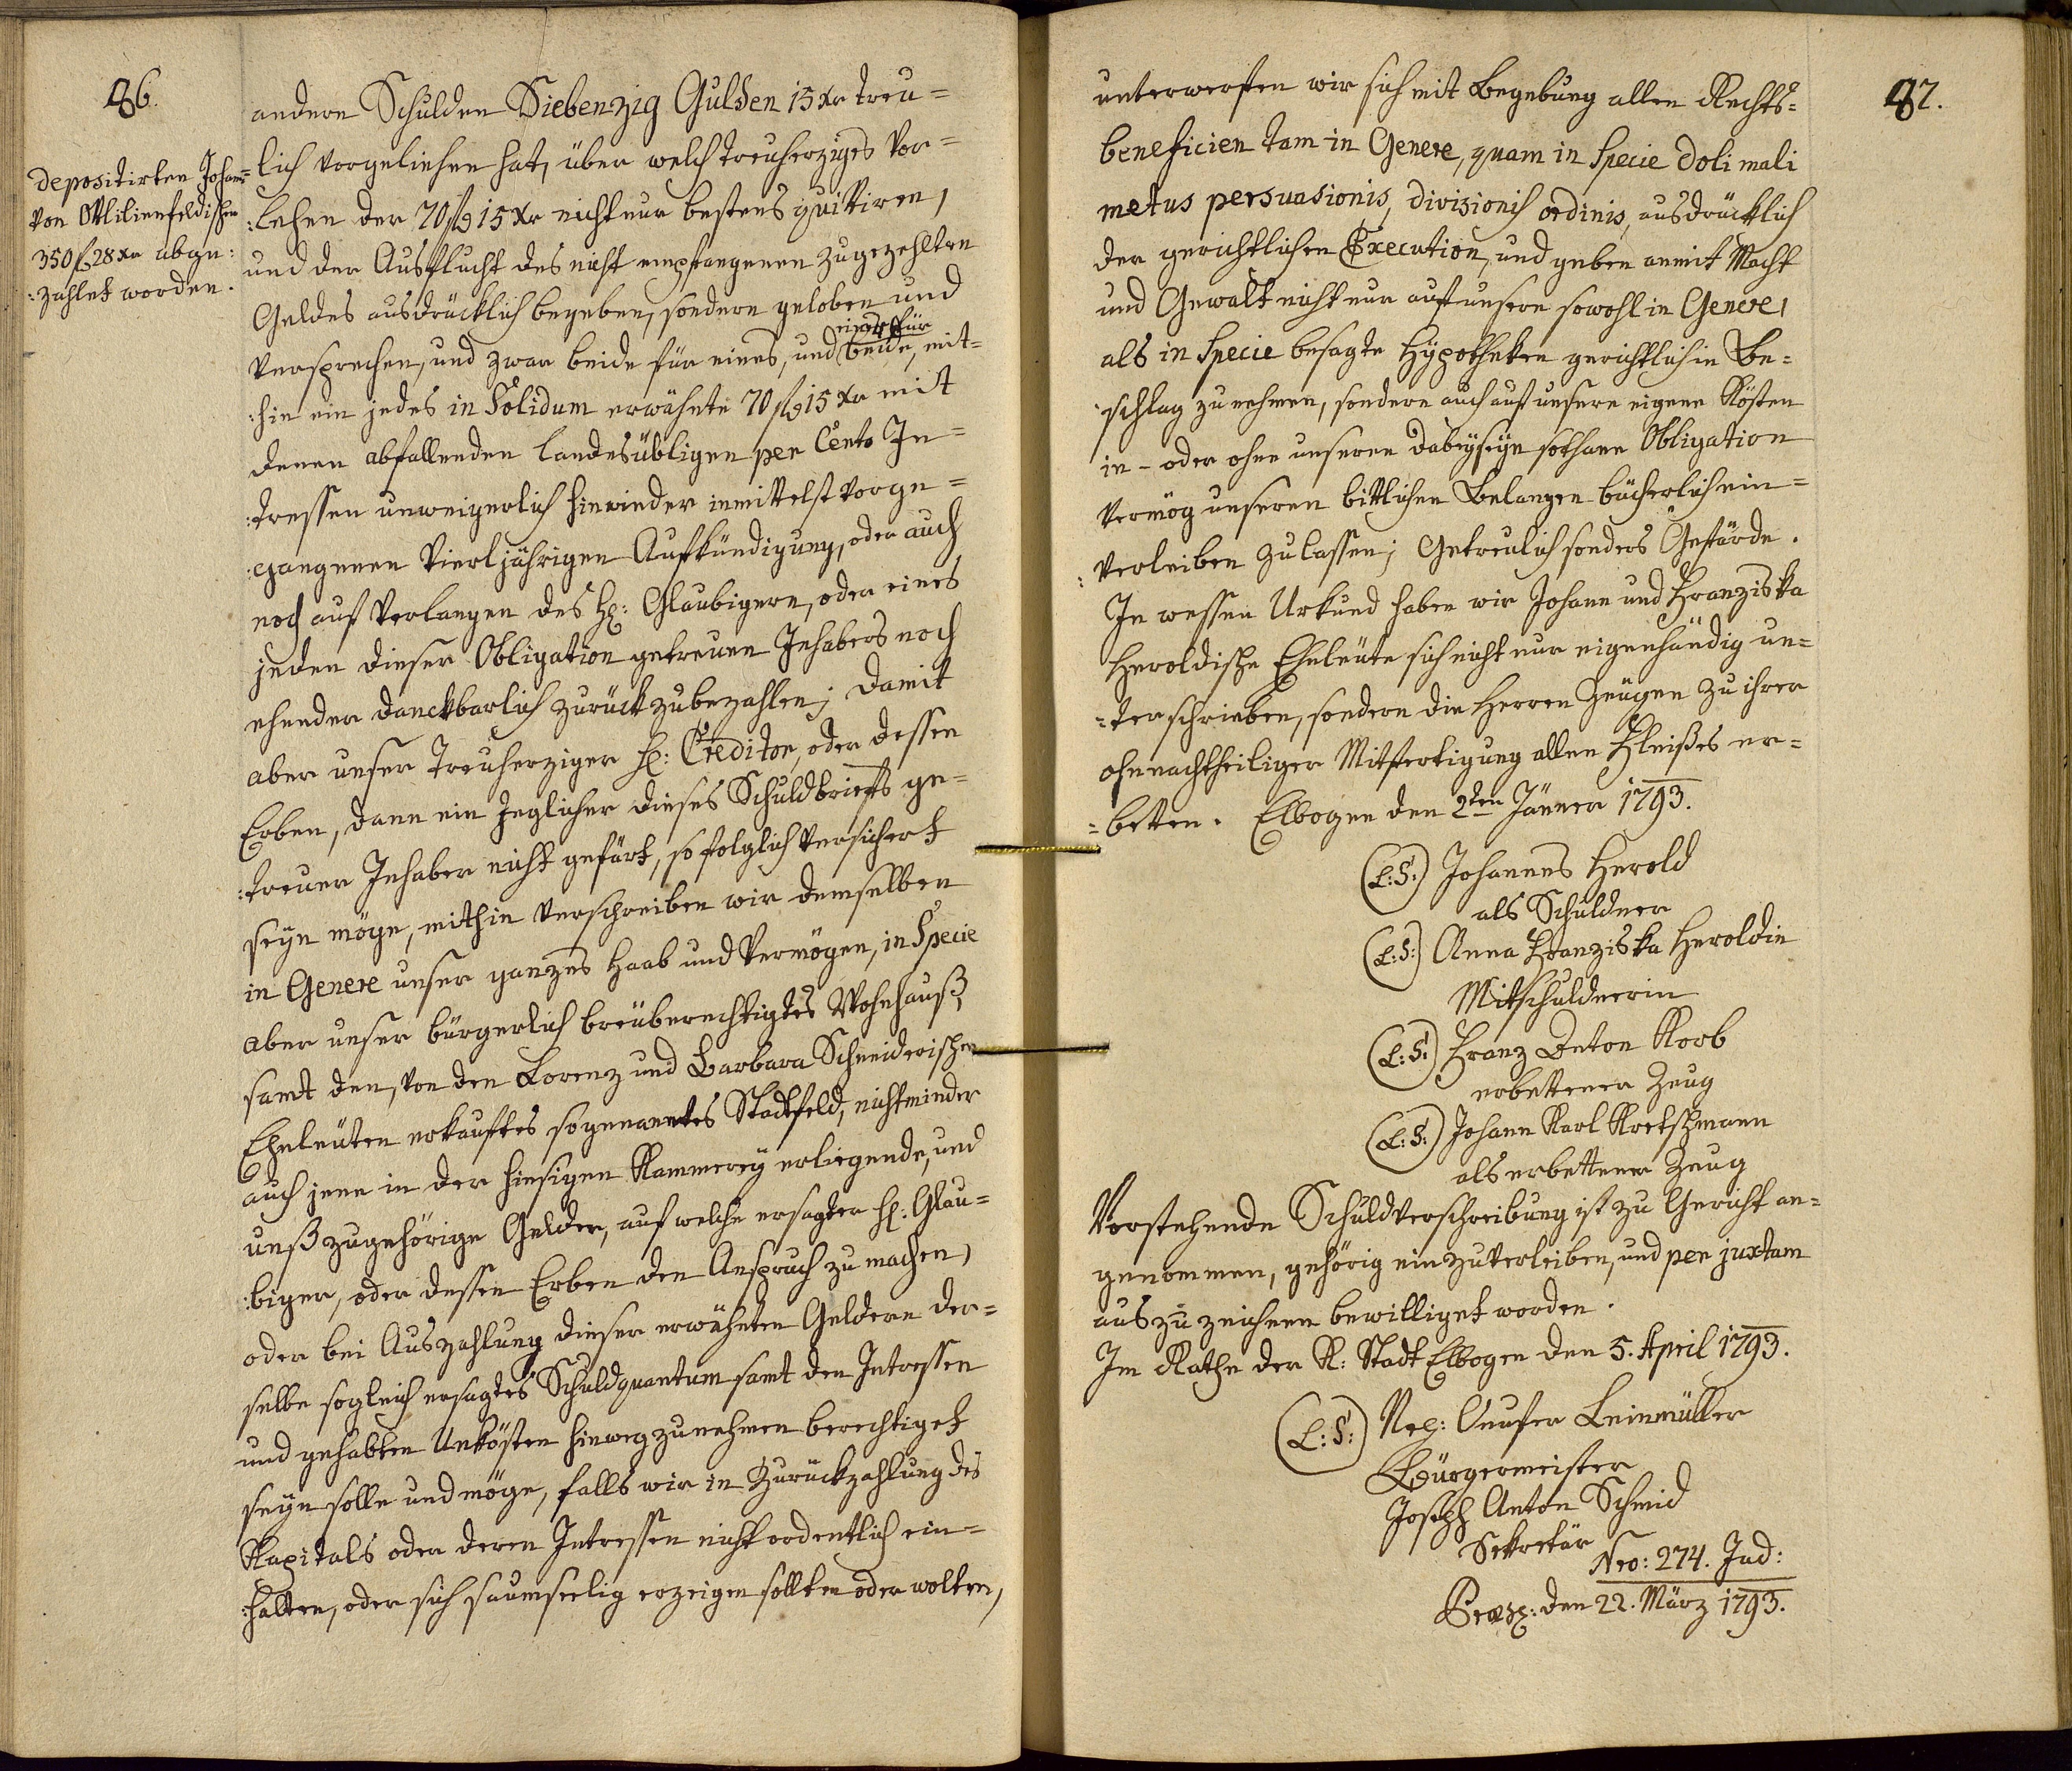 86.
depositirten Johann
von Ottilienfeldischen
350 f 28 xr abge:
:zahlet worden.
andere Schulden Siebenzig Gulden 15 xr treu=
lich vorgeliehen hat, über welch treuherziges Vor=
:lehen der 70 fl 15 xr nicht nur bestens quittiren,
und der Ausflucht des nicht empfangenen zugezehlten
Geldes ausdrücklich begeben, sondern geloben und
versprechen, und zwar beide für eines, und eines für beide, mit=
:hin ein jedes in Solidum erwähnte 70 fl 15 xr mit
denen abfallenden landesübligen per Cento In=
:tressen unweigerlich hinwieder inmittelst vorge=
:gangenen vierljährigen Aufkündigung, oder auch
noch auf Verlangen des H: Glaubigern, oder eines
jeden dieser Obligation getreuen Inhabers noch
ehender danckbarlich zurückzubezahlen; damit
aber unser treuherziger H: Creditor, oder dessen
Erben, dann ein jeglicher dieses Schuldbriefs ge=
:treuer Inhaber nicht gefärt, so folglich versichert
seyn möge, mithin verschreiben wir demselben
in Genere unser ganzes Haab und Vermögen, in Specie
aber unser bürgerlich breüberechtigtes Wohnhauß,
samt den, von den Lorenz und Barbara Schneiderischen
Eheleüten erkauftes sogenanntes Stadtfeld, nichtminder
auch jene in der hiesigen Kammerey erliegende, und
unß zugehörige Gelder, auf welche ersagter H: Glau=
:biger, oder dessen Erben den Anspruch zu machen,
oder bei Auszahlung dieser erwähnten Geldern der=
selbe sogleich ersagtes Schuldquantum samt den Intressen
und gehabten Unkösten hinweg zunehmen berechtiget
seyn solle und möge, falls wir in Zurückzahlung des
Kapitals oder deren Intressen nicht ordentlich ein=
:halten, oder sich saumseelig erzeigen sollten oder wolten,
87.
unterwerfen wir sich mit Begebung allen Rechts=
beneficien tam in Genere, quam in Specie doli mali
metus persuasionis, divisionis ordinis, ausdrücklich
der gerichtlichen Execution, und geben anmit Macht
und Gewalt nicht nur auf unsere sowohl in Genere,
als in Specie besagte Hypotheken gerichtlich in Be=
:schlag zu nehmen, sondern auch auf unsere eigene Kösten
in - oder ohne unseren dabeyseyn sothane Obligation
vermög unseren bittlichen Belangen bücherlich ein=
:verleiben zu lassen; Getreulich sonders Gefärde.
In wessen Urkund haben wir Johann und Franziska
Heroldische Eheleüte sich nicht nur eigenhändig un=
=terschrieben, sondern die Herren Zeügen zu ihrer
ohnnachtheiliger Mitfertigung allen Fleißes er=
=betten. Elbogen den 2ten Jänner 1793.
(L:S:) Johannes Herold
als Schuldner
(L:S:) Anna Franziska Heroldin
Mitschuldnerin
(L:S:) Franz Anton Korb
erbettener Zeug
(L:S:) Johann Karl Kretschmann
als erbettener Zeug
Vorstehende Schuldverschreibung ist zu Gericht an=
genommen, gehörig einzuverleiben, und per juxtam
auszuzeichnen bewilliget worden.
Im Rathe der K: Stadt Elbogen den 5. April 1793.
(L:S:) Leinmüller
Bürgermeister
Joseph Anton Schmid
Sekretär
Nro: 274. Jud:
den 22. März 1793.